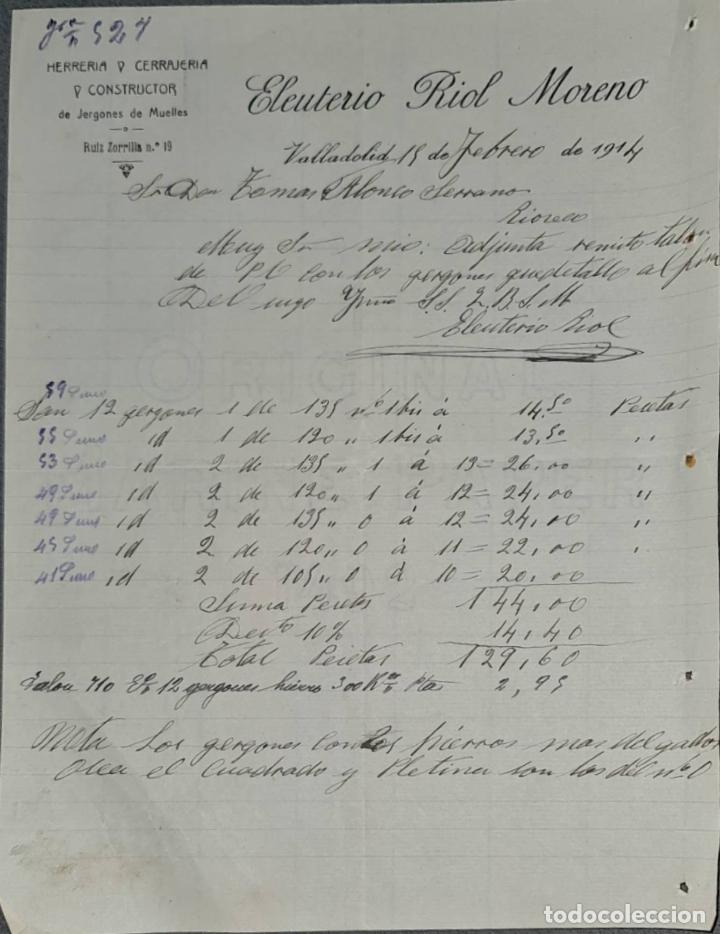 527
HERRERIA Y CERRAJERIA
Y CONSTRUCTOR
de Jergones de Muelles
Ruiz Zorrilla n.º 19
Eleuterio Riol Moreno
Valladolid 15 de Febrero de 1914
Sr Don Tomas Alonso Serrano
Rioseco
Muy Sr mio: adjunto remito talon
de P V con los gergones que detallo al
Del suyo S.S. Q.B.S.M
Eleuterio Riol
59
Son 12 gergones 1 de 135 nº 1 bis á 14,50 Pesetas
55 id 1 de 120 „ 1 bis á 13,50 „
53 id 2 de 135 „ 1 á 13 = 26,00 „
49 id 2 de 120 „ 1 á 12 = 24,00 „
49 id 2 de 135 „ 0 á 12 = 24,00 „
45 id 2 de 120 „ 0 á 11 = 22,00 „
41 id 2 de 105 „ 0 á 10 = 20,00
Suma Pesetas 144,00
Decto 10% 14,40
Total Pesetas 129,60
Talon 710 12 gergones hierro 300 K Ptas 2,95
Nota Los gergones con los hierros mas delgados
Osea el cuadrado y Pletina son los del nº 0
ORIGINAL
todocoleccion